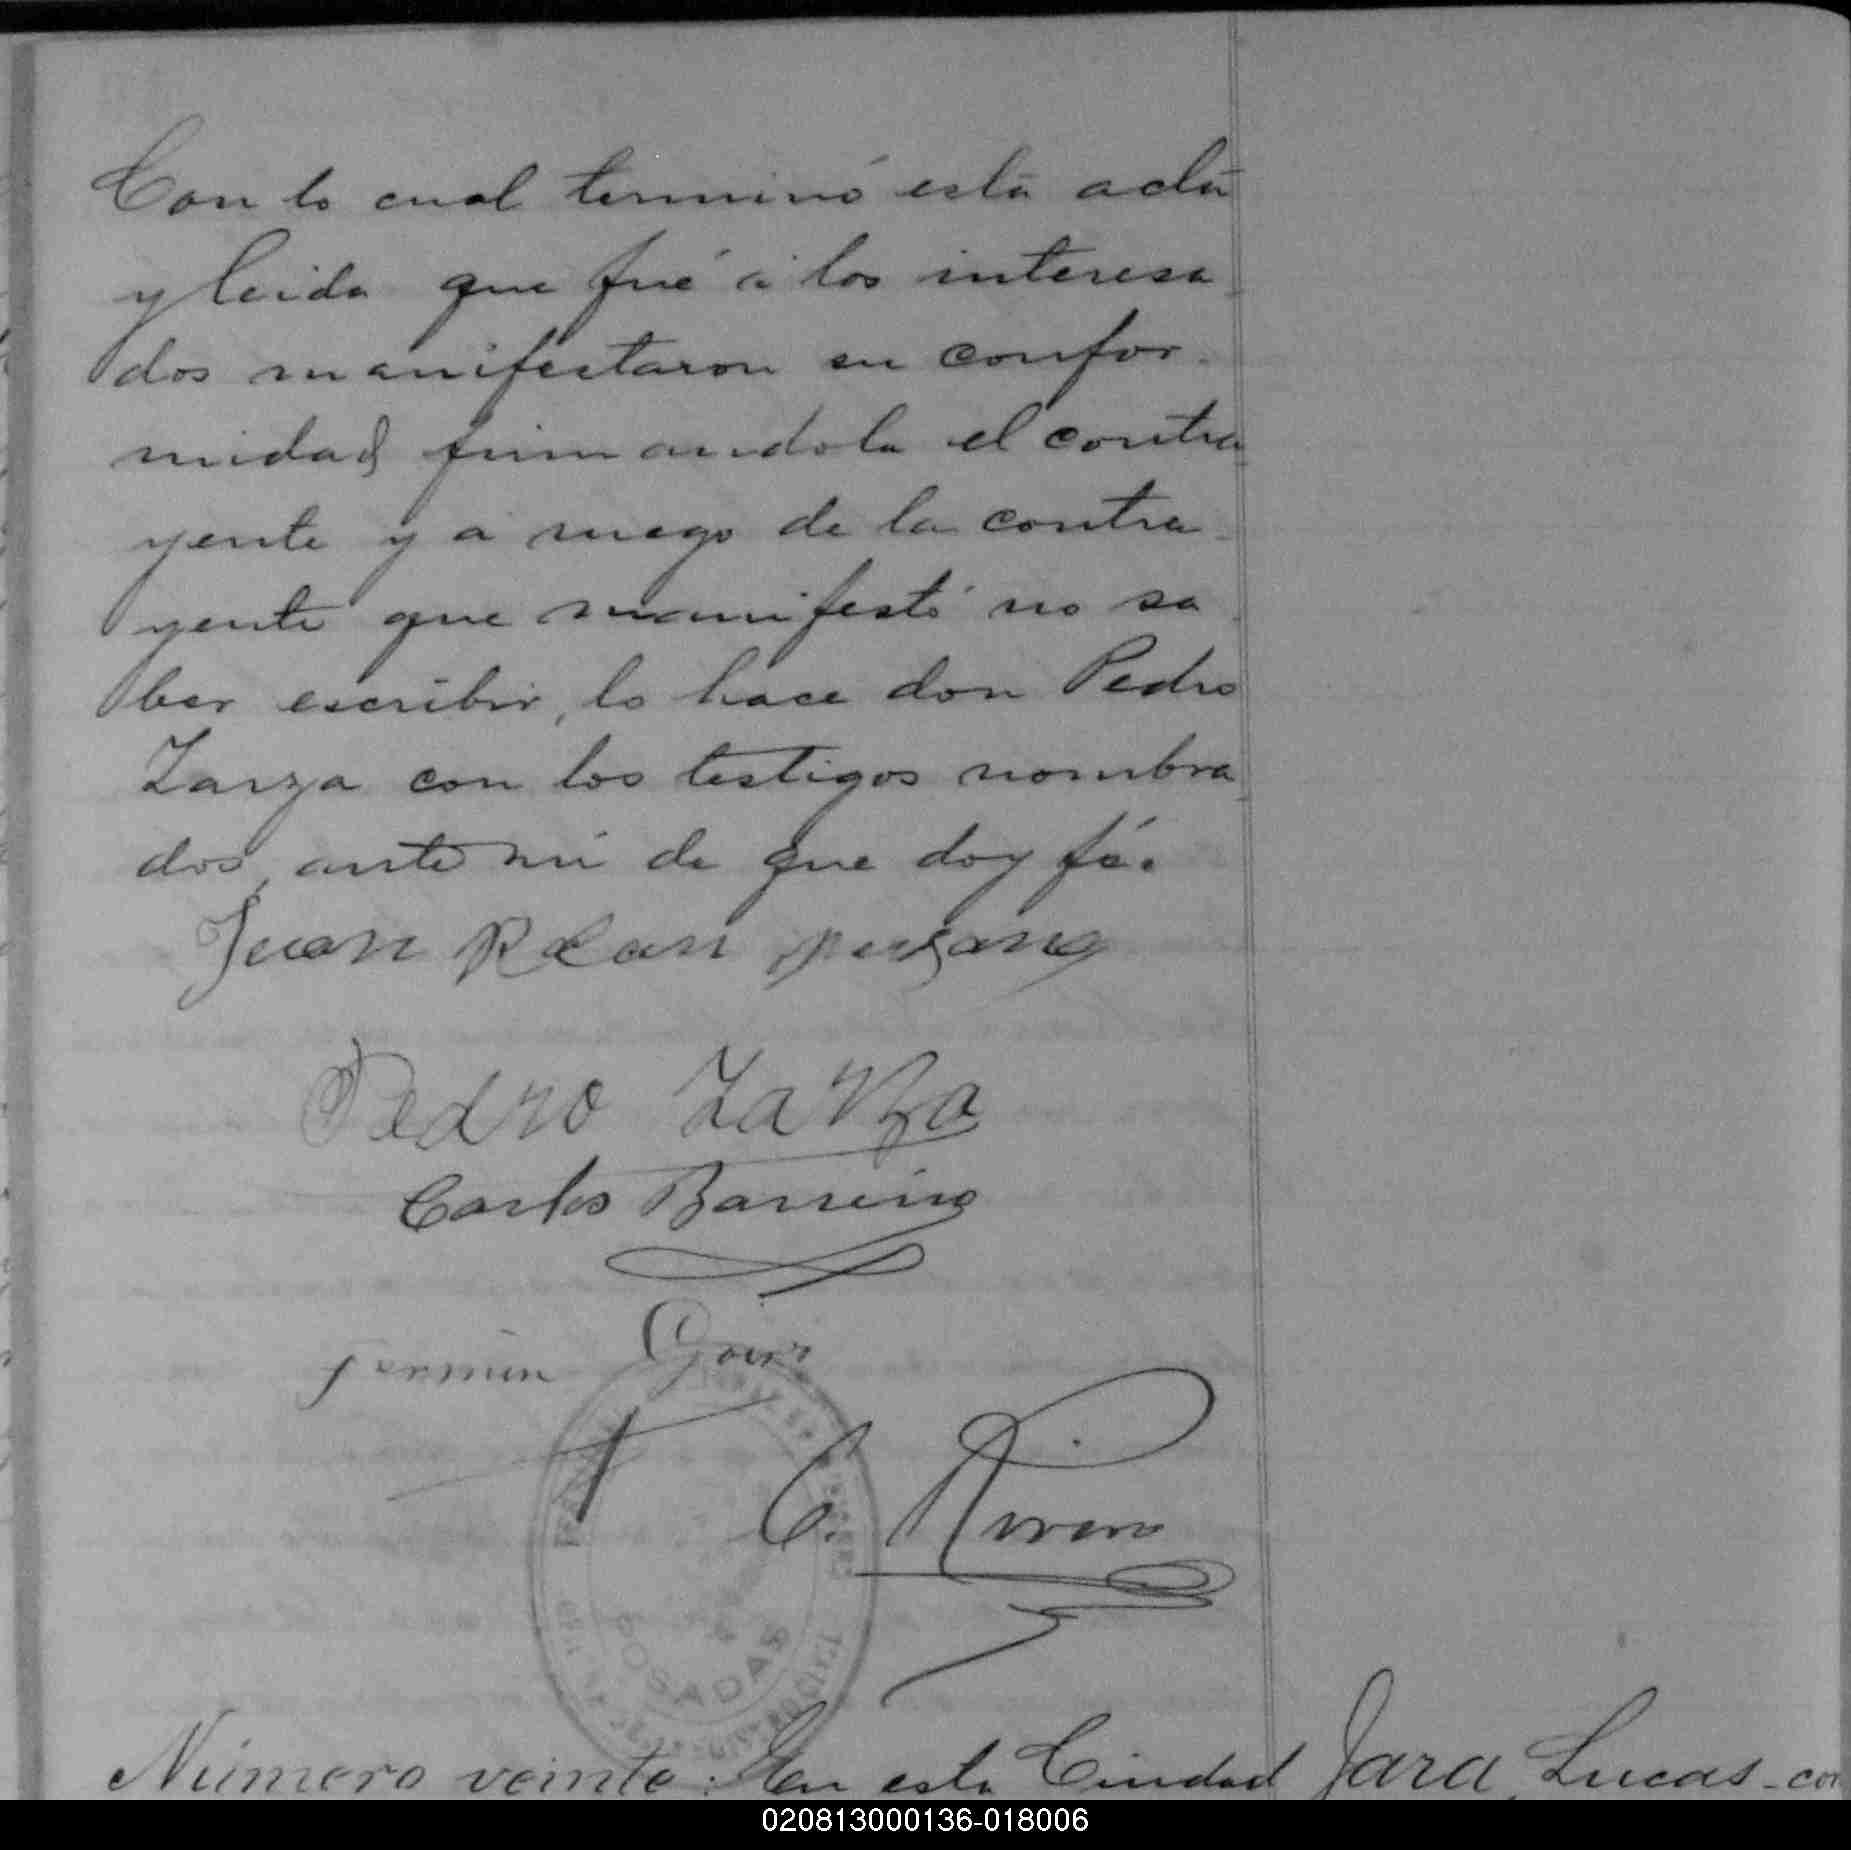 Con lo cual terminó esta acta
y leida que fué á los interesa
dos manifestaron su confor-
midad firmandola el contra
yente y a ruego de la contra
yente que manifestó no sa
ber escribir, lo hace don Pedro
Zarza con los testigos nombra
dos, ante mí de que doy fé.
Juan
Pedro Zarza
Carlos Barreiro
fermin
C. Rivero
POSADAS
Número veinte: En esta Ciudad
Jara, Lucas - con
020813000136-018006